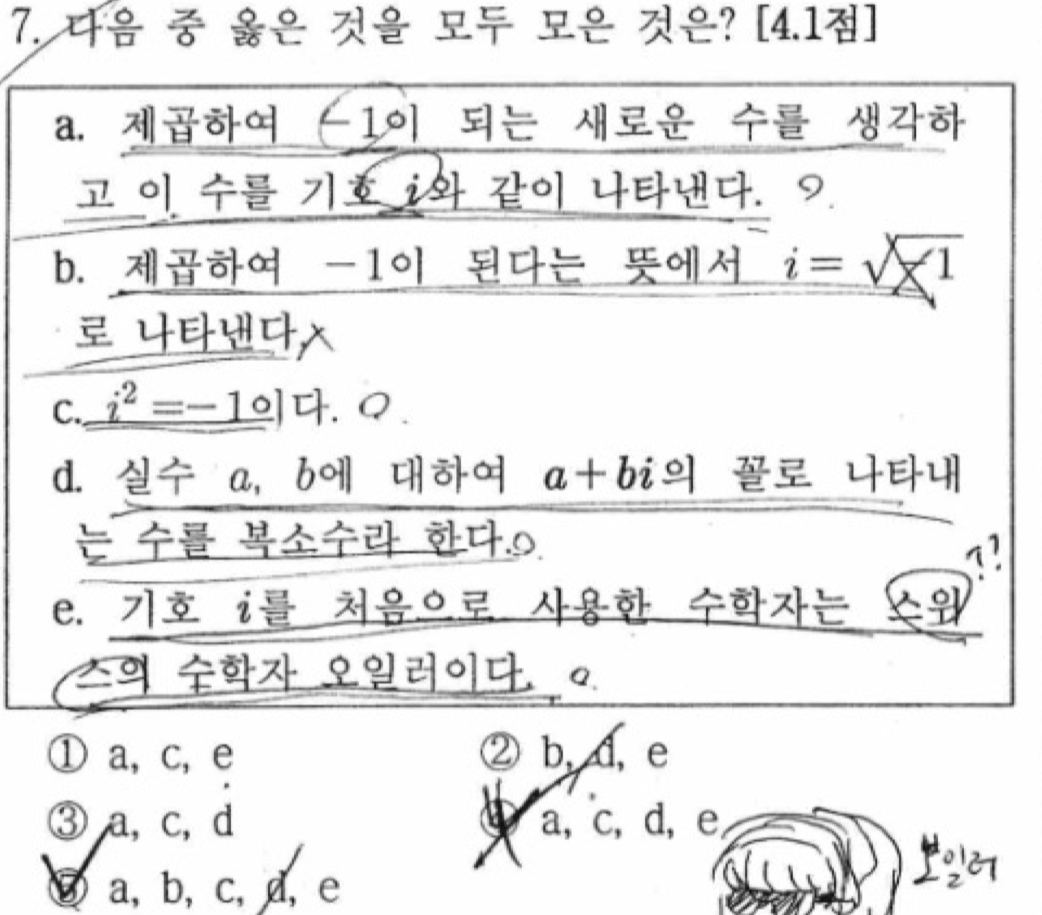 7. 다음 중 옳은 것을 모두 모은 것은? [4.1점]
a. 제곱하여 -1이 되는 새로운 수를 생각하
고 이 수를 기호 i와 같이 나타낸다.
b. 제곱하여 -1이 된다는 뜻에서 i=√-1
로 나타낸다. X
c. i²=-1이다. O.
d. 실수 a, b에 대하여 a+bi의 꼴로 나타내
는 수를 복소수라 한다. O.
e. 기호 i를 처음으로 사용한 수학자는 스위
스의 수학자 오일러이다. O.
① a, c, e
② b, d, e
③ a, c, d
④ a, c, d, e
⑤ a, b, c, d, e
보일러